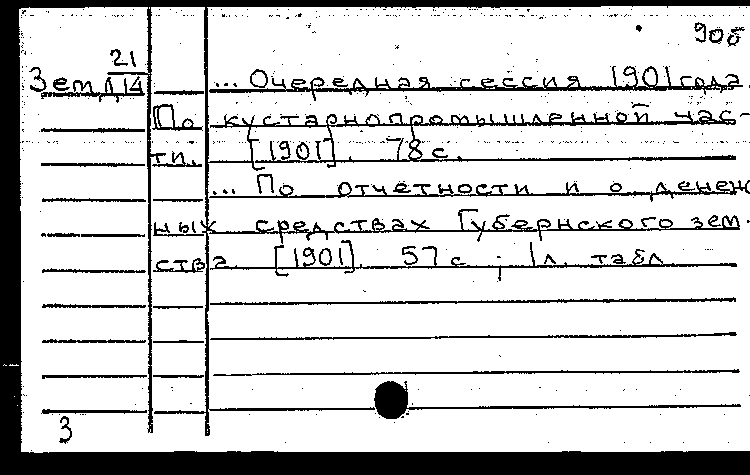 90б
21
Зем Д14 ... Очередная сессия 1901 года.
По кустарнопромышленной час-
ти. [1901]. 78 с.
... По отчетности и о денеж
ных средствах Губернского зем-
ства [1901]. 57 с ; 1 л. табл
3